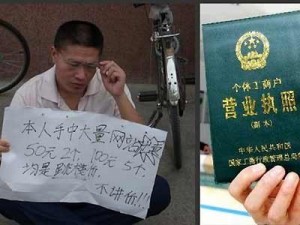 本人手中大量网站
50元2个 100元5个
均是
不讲价!!!
个体工商户
营业执照
(副本)
中华人民共和国
国家工商行政管理总局